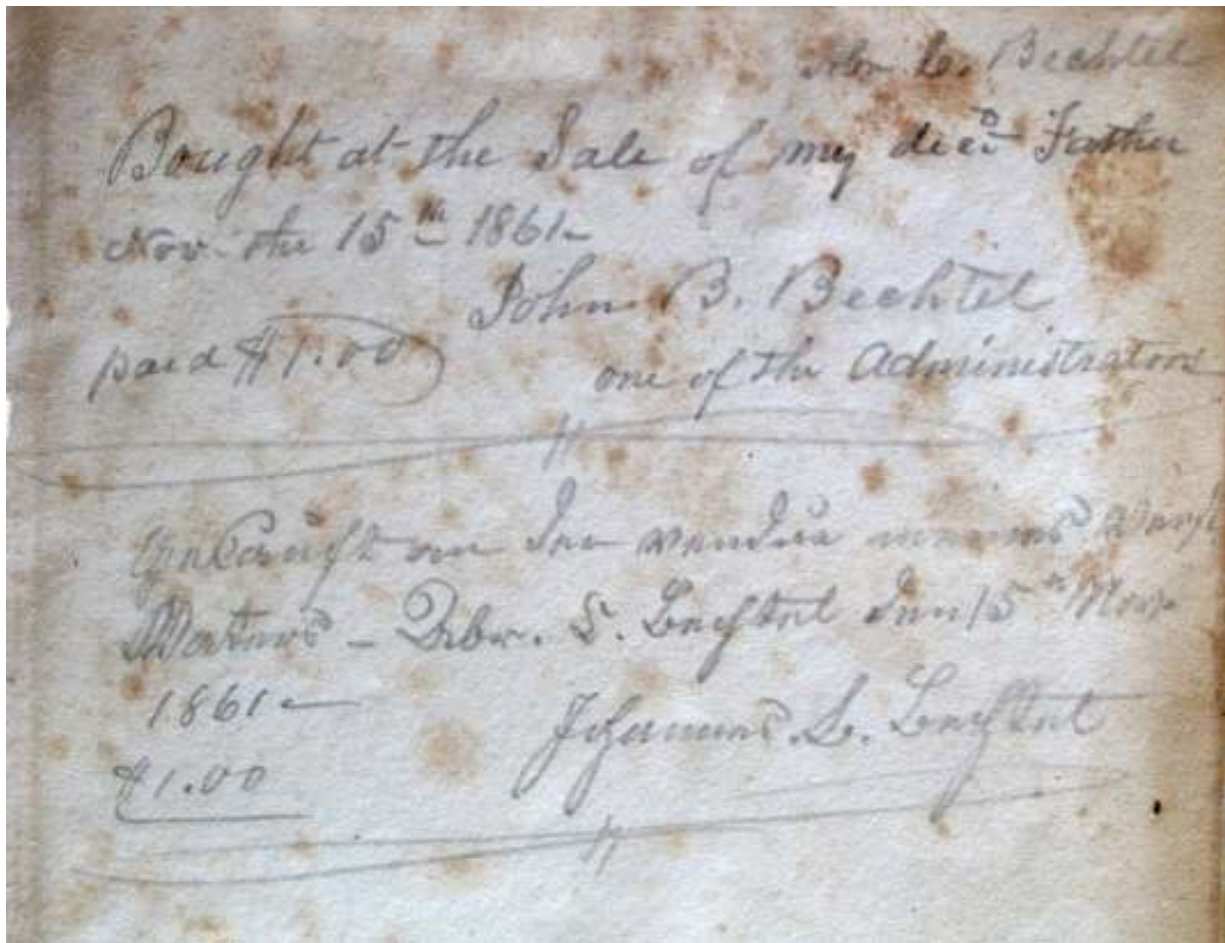 Abr C. Bechtel
Bought at the Sale of my dec.ᴰ Father
Nov. the 15th 1861
John B. Bechtel
paid $1.00
one of the Administrators
Gekauft an der vendue meines
Vaters – Abr. C. Bechtel den 15th Nov
1861
Johannes B. Bechtel
$1.00